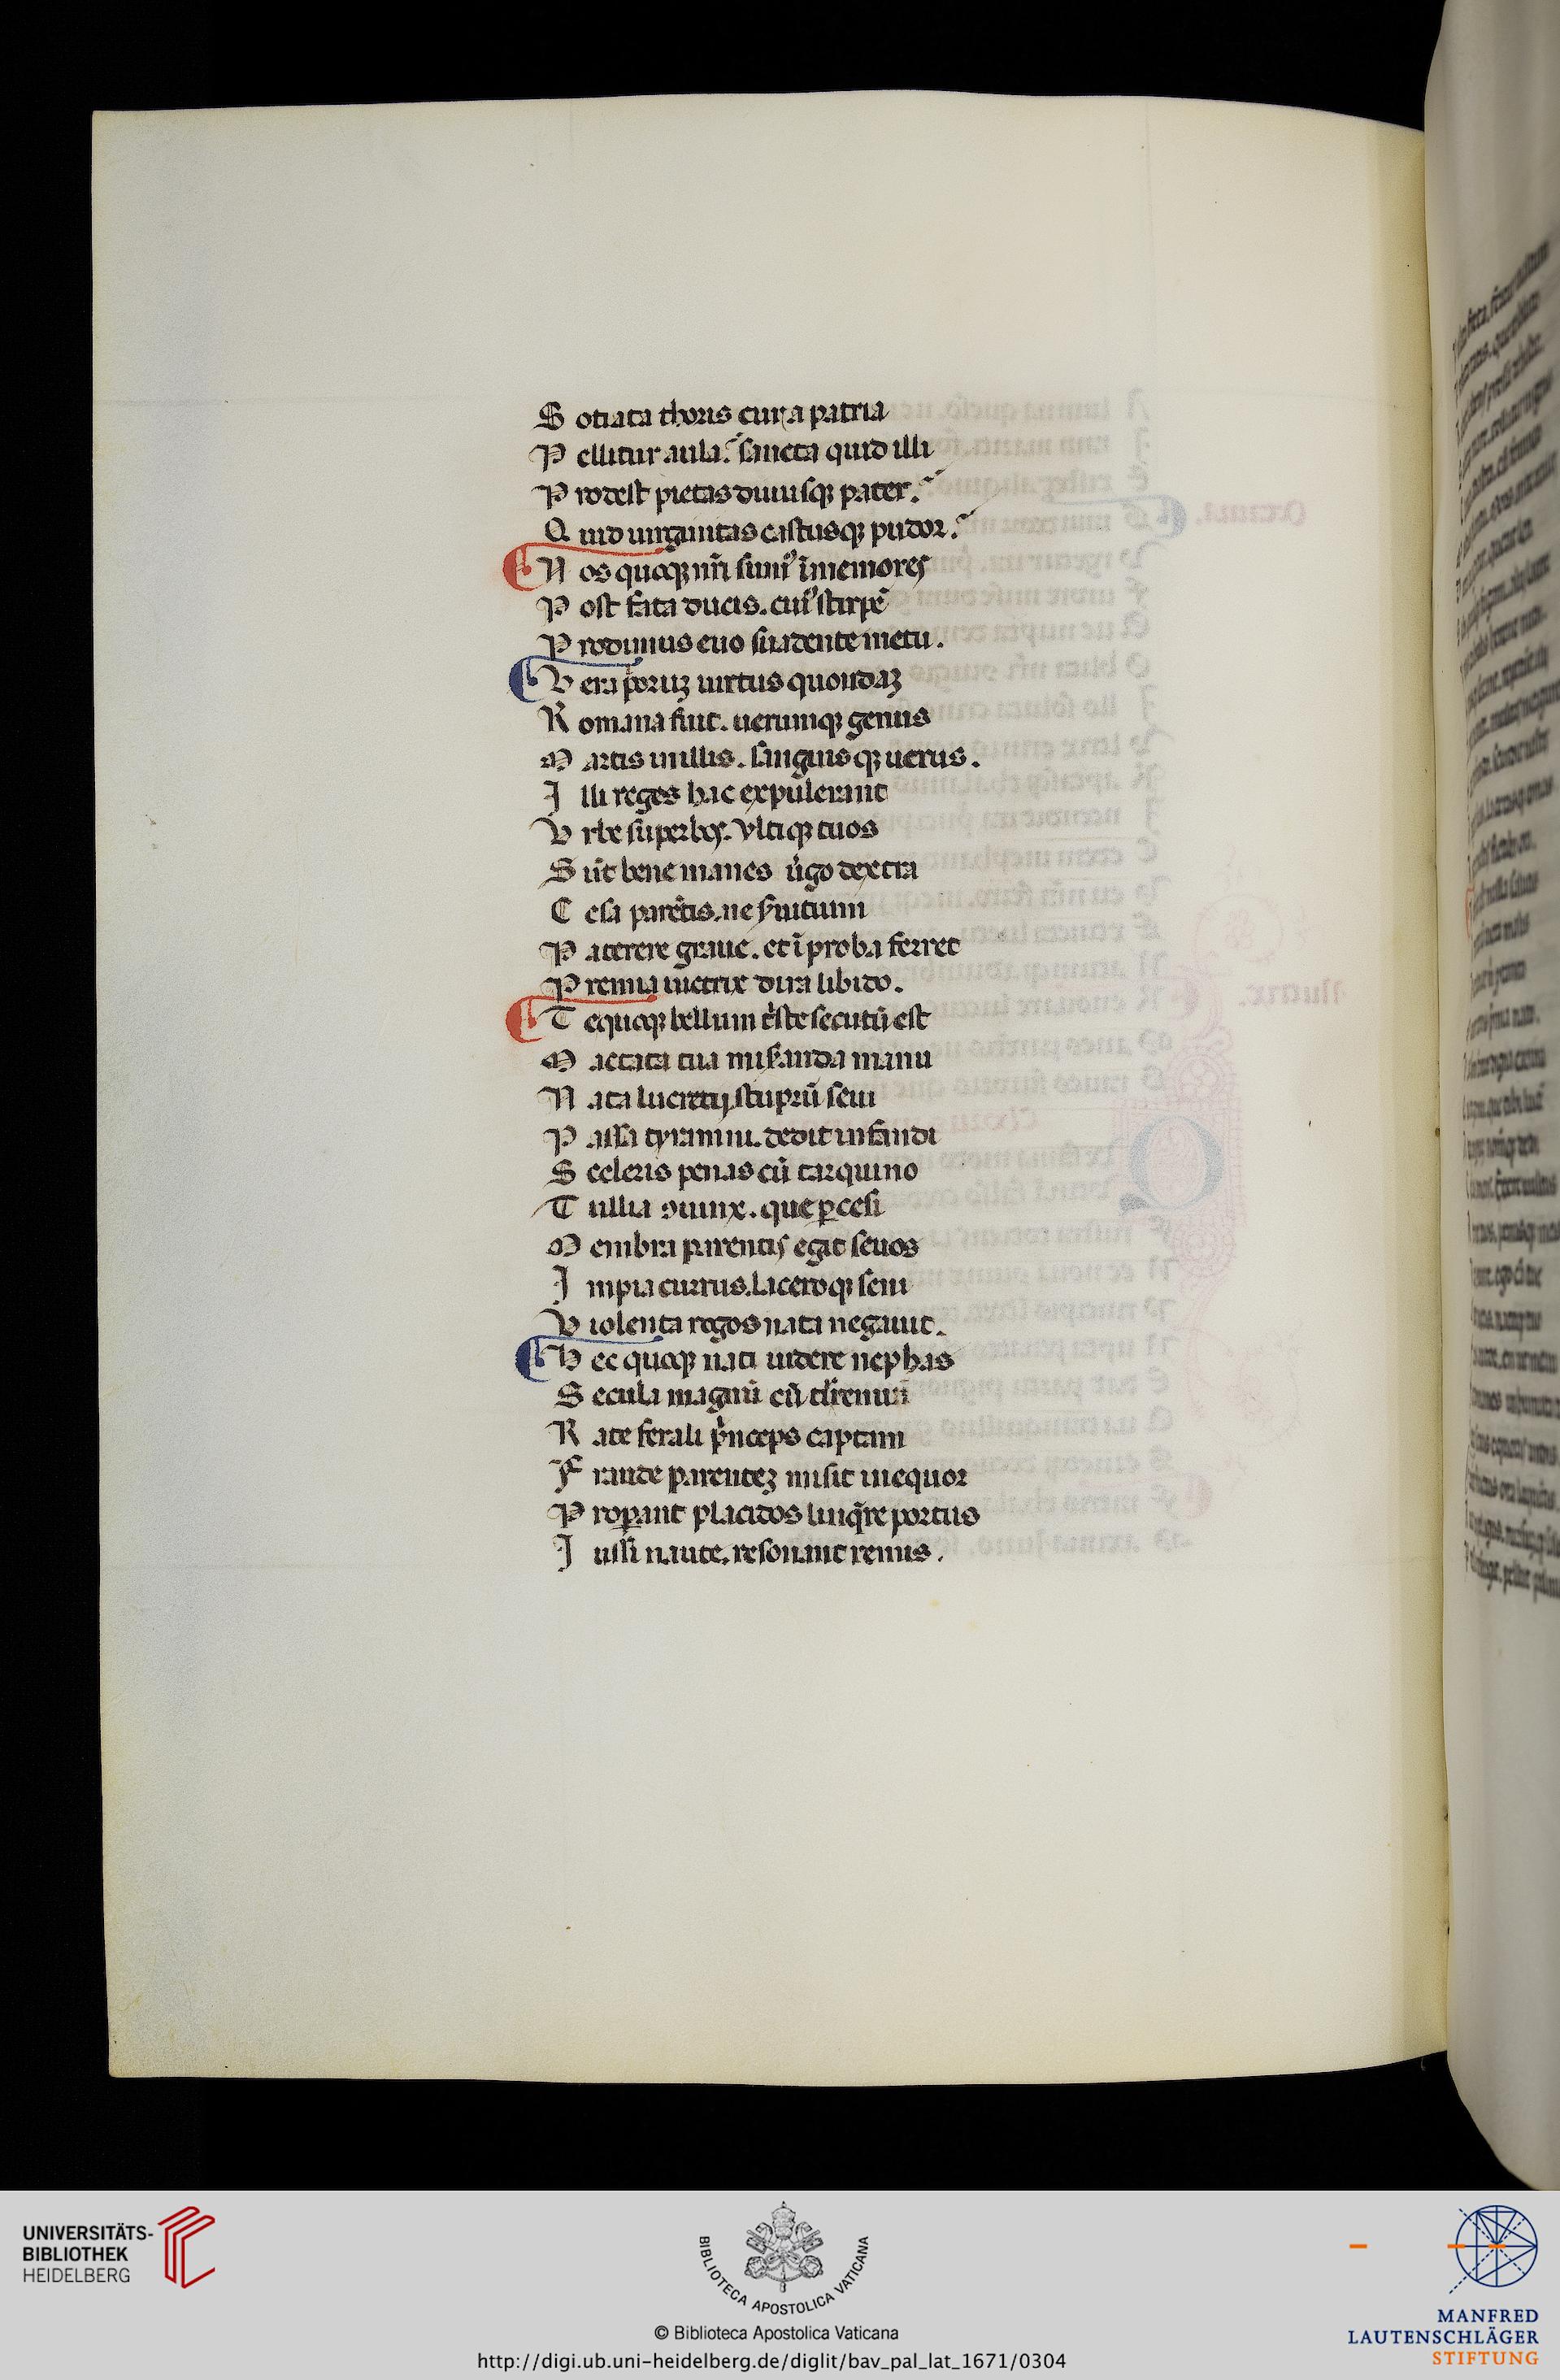 S otiata thoris cur a patria
P ellitur aula. sancta quid illi
P rodest pietas diuusqꝫ pater.
Q uid uirginitas castusqꝫ pudor.
N os quoqꝫ nr̄i sumꝰ īmemores
P ost fata ducis. cuiꝰ stirpē
P rodimus euo suadente metu.
V era poruꝫ uirtus quondaꝫ
R omana fuit. uerumqꝫ genus
M artis in illis. sanguisqꝫ uerus.
I lli reges hac expulerant
V rbe superbos. Vltiqꝫ tuos
S ūt bene manes uirgo dextra
C esa parētis. ne seruitium
P aterere graue. et īproba ferret
P remia uictrix dira libido.
T e quoqꝫ bellum tͥste secutū est
M actata tua miseranda manu
N ata lucretij stuprū seui
P assa tyranni. dedit infandi
S celeris penas cū tarquino
T ullia ꝯiunx. que ꝑ cesi
M embra parentis egit seuos
I mpia currus. laceroqꝫ seni
V iolenta rogos nata negauit.
H ec quoqꝫ nati uidere nephas
S ecula magnū cū tirrenum
R ate ferali pͥnceps captam
F raude parenteꝫ misit in equor
P roꝑant placidos linqͣre portus
I ussi naute. resonant remis.
UNIVERSITÄTS-
BIBLIOTHEK
HEIDELBERG
BIBLIOTECA APOSTOLICA VATICANA
© Biblioteca Apostolica Vaticana
http://digi.ub.uni-heidelberg.de/diglit/bav_pal_lat_1671/0304
MANFRED
LAUTENSCHLÄGER
STIFTUNG